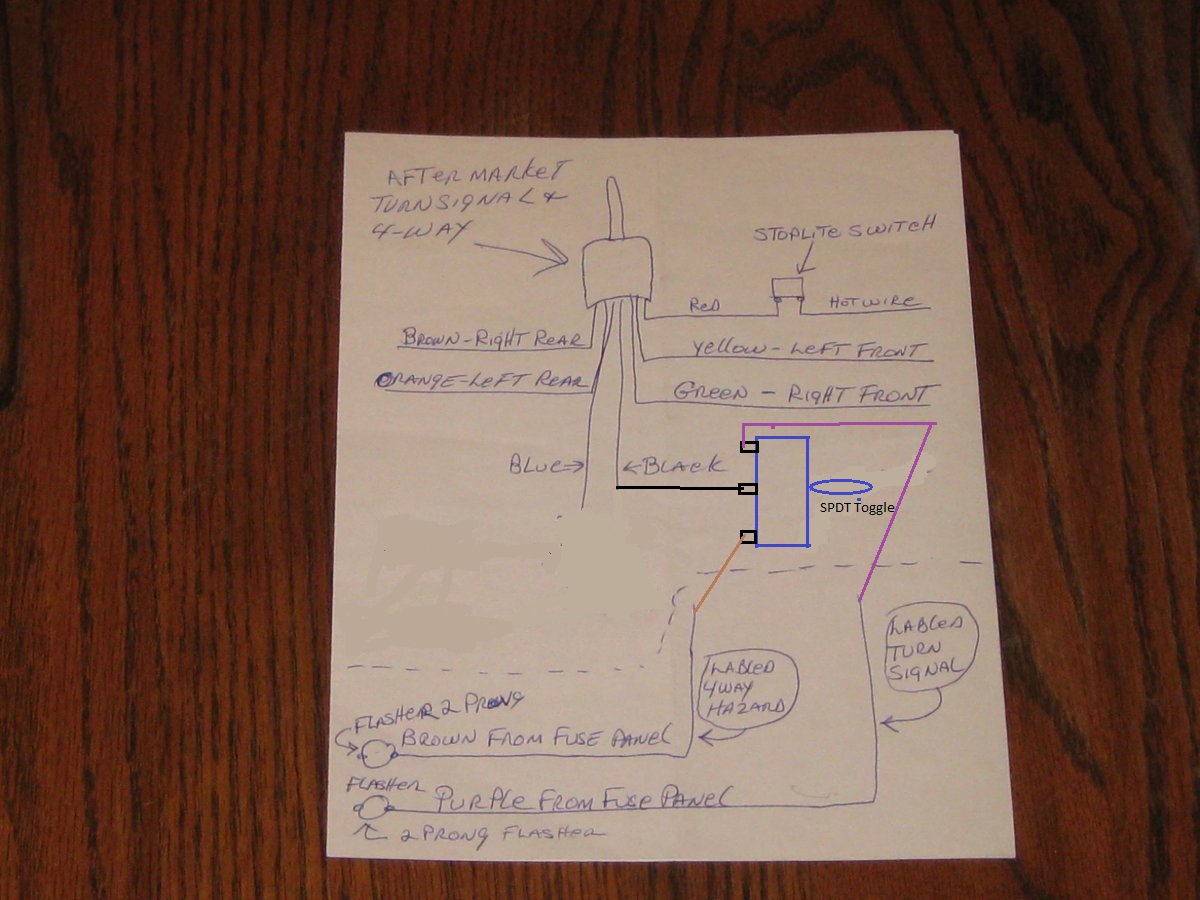 AFTER MARKET
TURN SIGNAL &
4-WAY
STOPLITE SWITCH
RED
HOT WIRE
BROWN-RIGHT REAR
YELLOW-LEFT FRONT
ORANGE-LEFT REAR
GREEN - RIGHT FRONT
BLUE
BLACK
SPDT Toggle
LABLED
TURN
SIGNAL
LABLED
4WAY
HAZARD
FLASHER 2 PRONG
BROWN FROM FUSE PANEL
FLASHER
PURPLE FROM FUSE PANEL
2 PRONG FLASHER